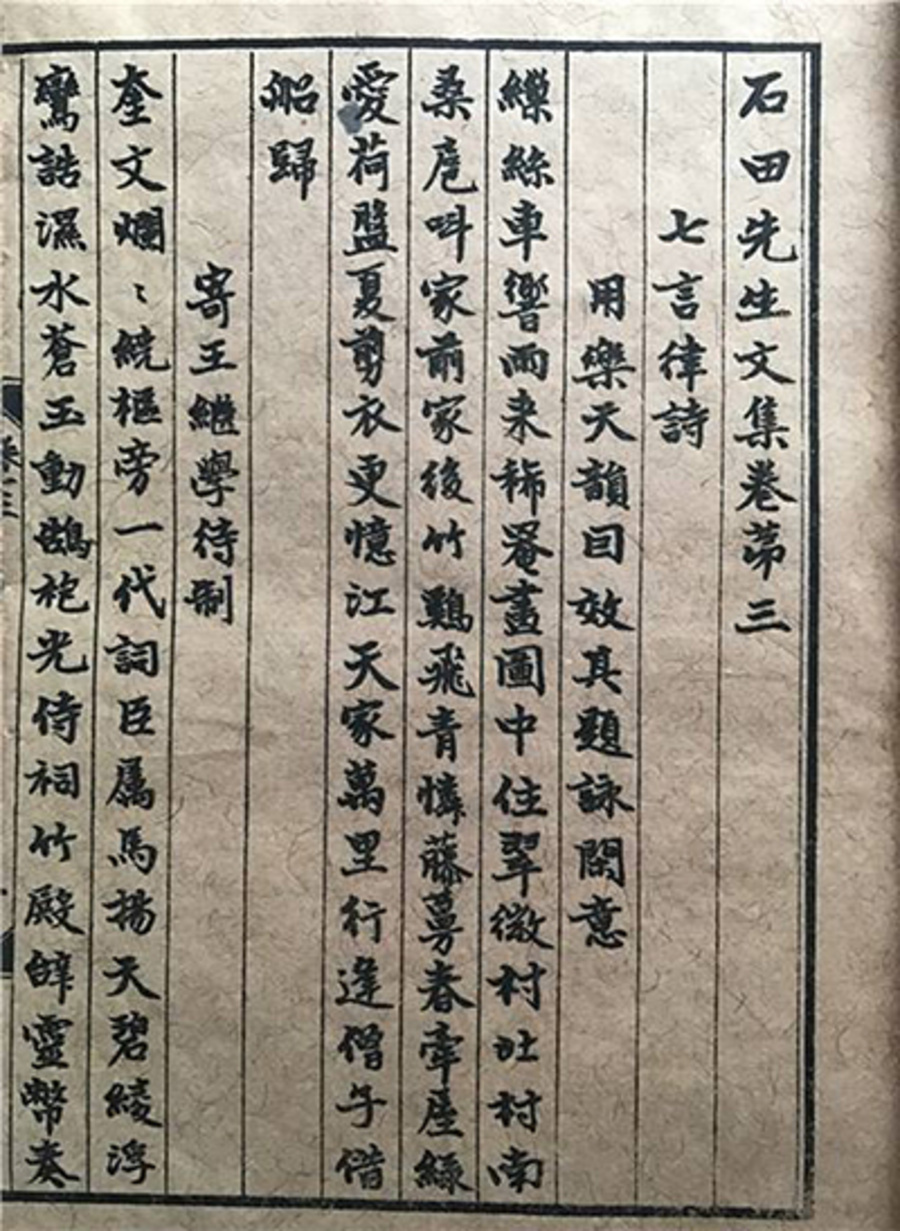 石田先生文集卷苐三
七言律詩
用樂天韻囙效其題詠閑意
繅絲車響雨来稀罨畫圖中住翠微村北村南
桑扈呌家前家後竹鷄飛青憐藤蔓春牽屋緑
愛荷盤夏剪衣更憶江天家萬里行逢僧午借
船歸
寄王継學待制
奎文爛〻繞樞旁一代詞臣属馬揚天碧綾浮
鸞誥濕水蒼玉動鵠袍光侍祠竹殿皞靈幣奏